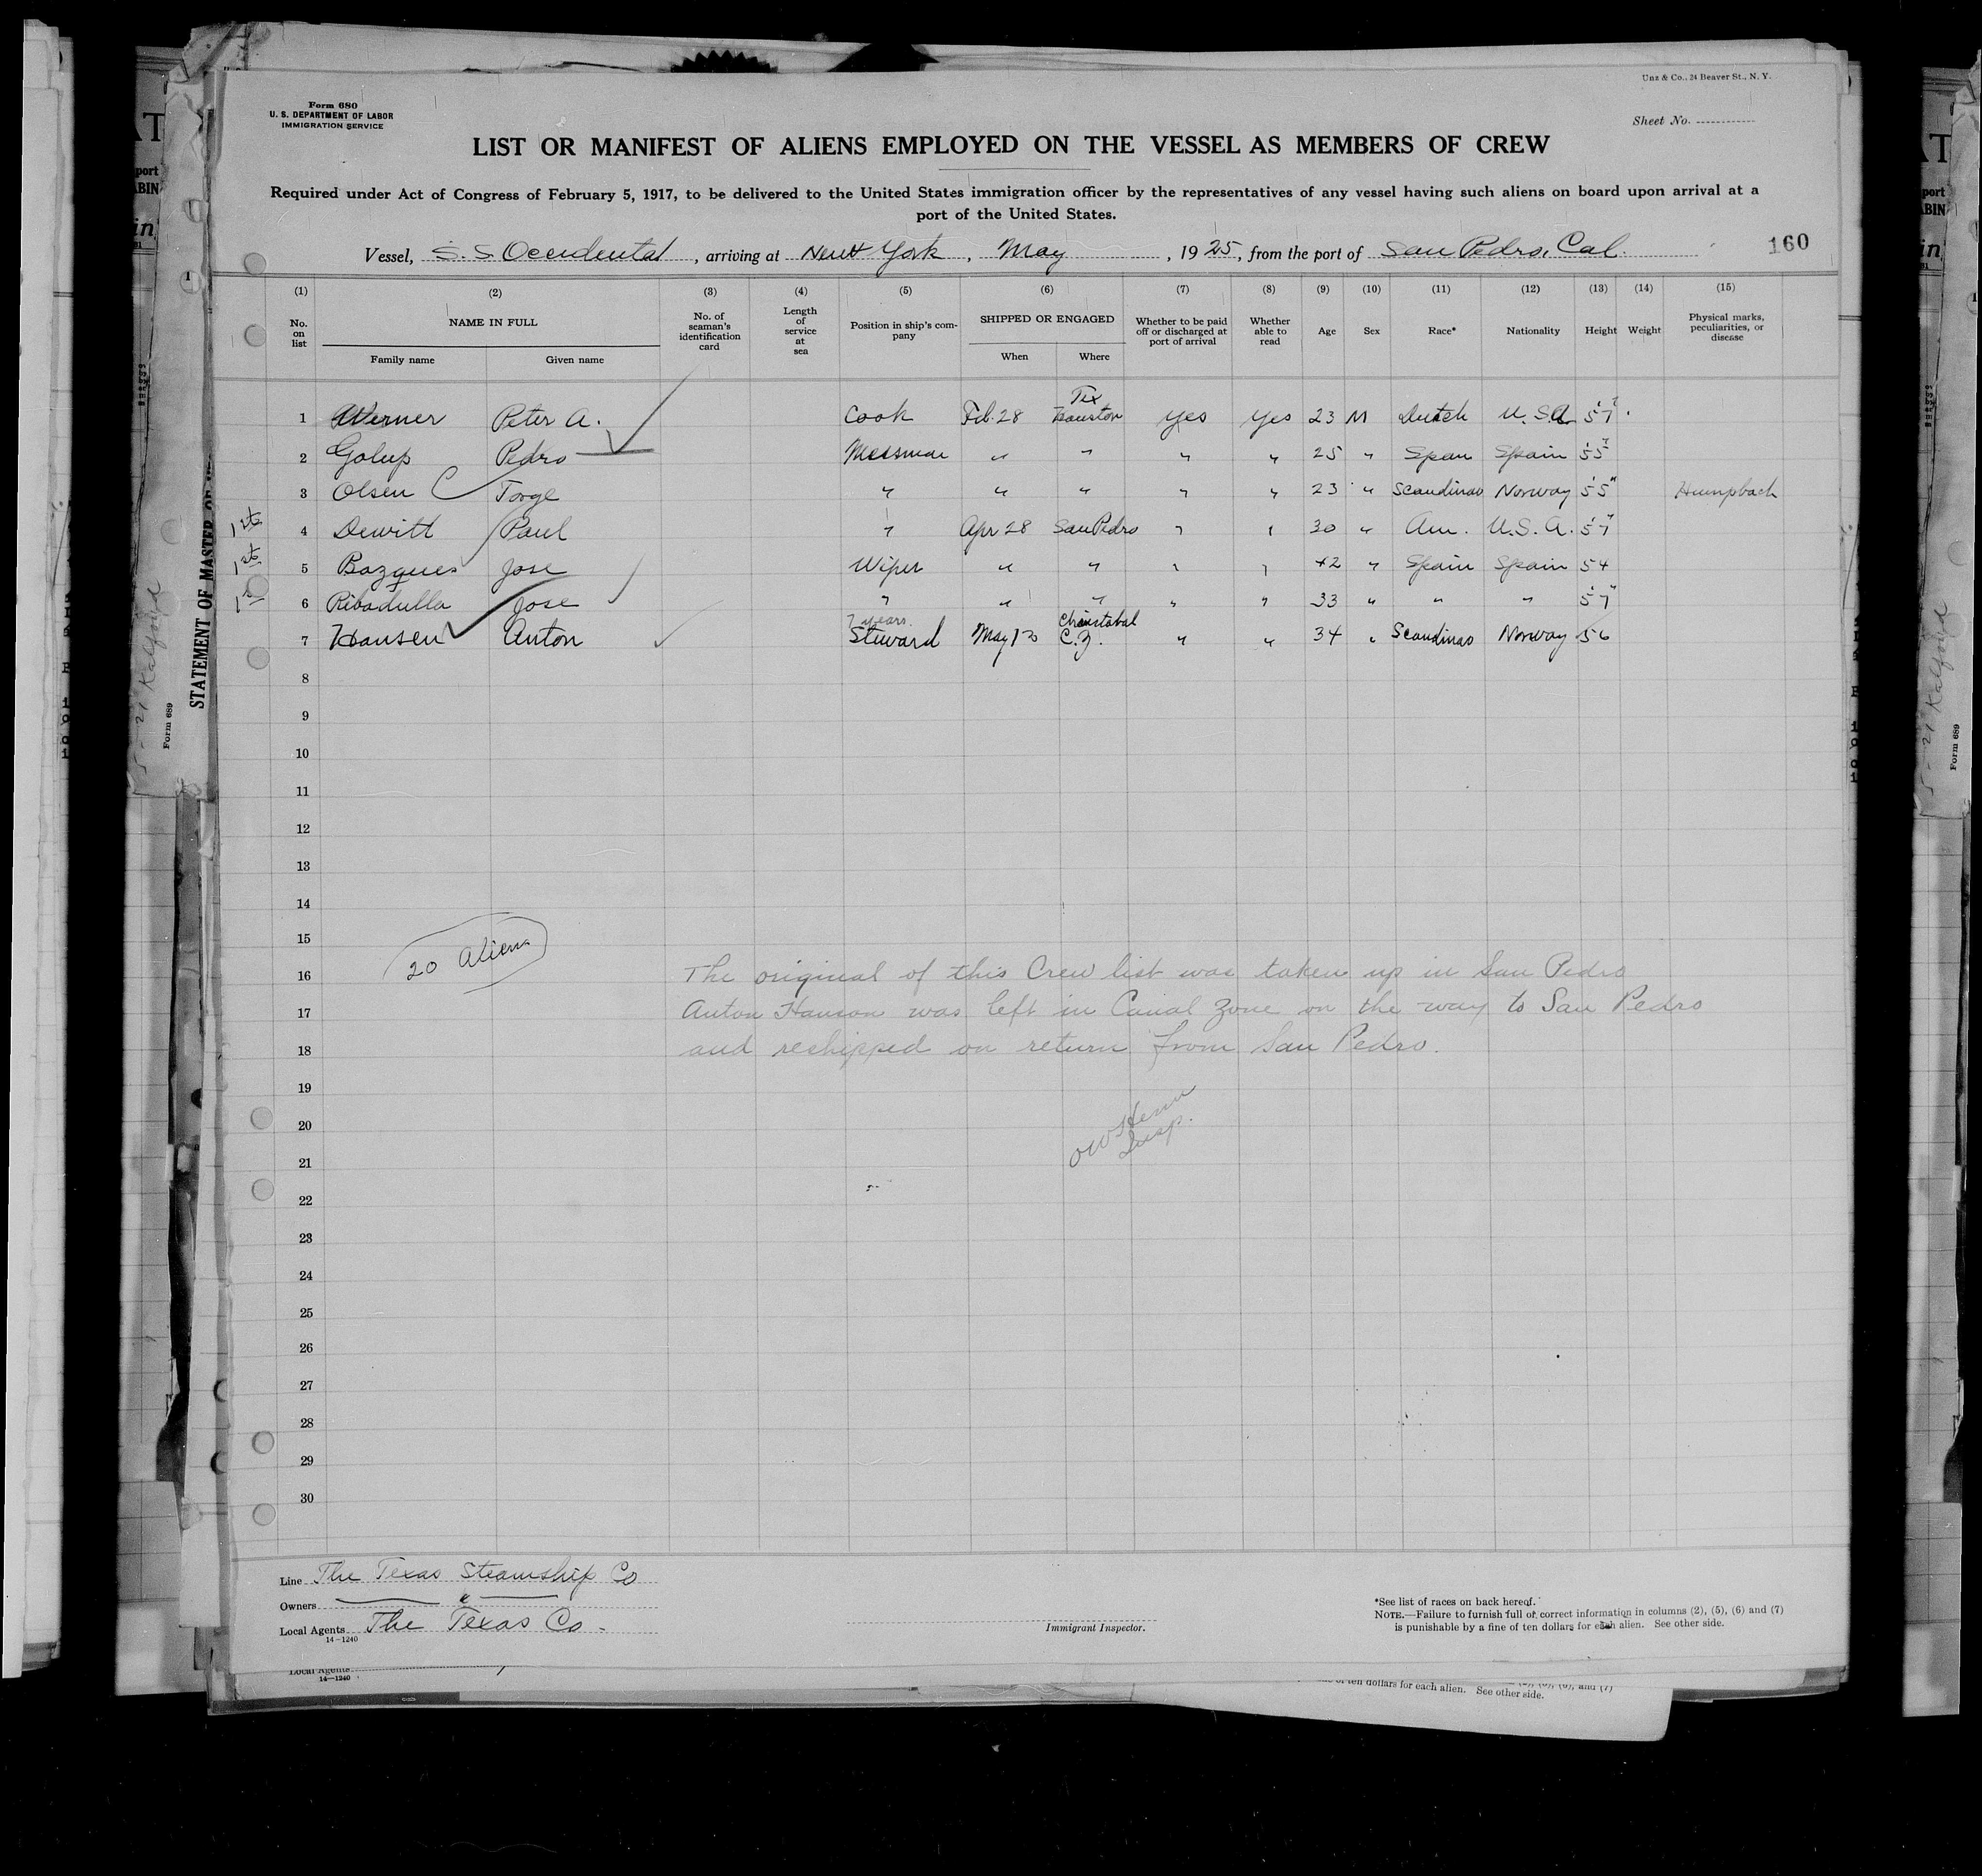 Unz & Co., 24 Beaver St., N. Y.
Form 680
U. S. DEPARTMENT OF LABOR
IMMIGRATION SERVICE
Sheet No.
LIST OR MANIFEST OF ALIENS EMPLOYED ON THE VESSEL AS MEMBERS OF CREW
Required under Act of Congress of February 5, 1917, to be delivered to the United States immigration officer by the representatives of any vessel having such aliens on board upon arrival at a
port of the United States.
Vessel, S. S Occidental, arriving at New York, May, 1925, from the port of San Pedro, Cal. 160
(1) (2) (3) (4) (5) (6) (7) (8) (9) (10) (11) (12) (13) (14) (15)
No. on list NAME IN FULL Family name Given name No. of seaman's identification card Length of service at sea Position in ship's company SHIPPED OR ENGAGED When Where Whether to be paid off or discharged at port of arrival Whether able to read Age Sex Race* Nationality Height Weight Physical marks, peculiarities, or disease
1 Werner Peter A. Cook Feb. 28 Houston Tex Yes Yes 23 M Dutch U.S.A 5' 7"
2 Golup Pedro Messman " " " " 25 " Span Spain 5' 5"
3 Olsen Torge " " " " " 23 " Scandinav Norway 5' 5" Humpback
1st 4 Dewitt Paul " Apr 28 San Pedro " " 30 " Am. U.S.A. 5' 7"
1st 5 Bazques Jose Wiper " " " " 42 " Spain Spain 5 4
1st 6 Ribadulla Jose " " " " " 33 " " " 5' 7"
7 years. Christobal
7 Hansen Anton Steward May 12 C.Z. " " 34 " Scandinav Norway 5 6
8
9
10
11
12
13
14
15
20 Aliens
16 The original of this Crew list was taken up in San Pedro
17 Anton Hanson was left in Canal Zone on the way to San Pedro
18 and reshipped on return from San Pedro.
19
20
Insp.
21
22
23
24
25
26
27
28
29
30
Line The Texas Steamship Co
Owners "
Local Agents The Texas Co.
14-1240
Immigrant Inspector.
*See list of races on back hereof.
NOTE.—Failure to furnish full or correct information in columns (2), (5), (6) and (7)
is punishable by a fine of ten dollars for each alien. See other side.
Local Agents
14-1240
ten dollars for each alien. See other side.
STATEMENT OF MASTER OF
Form 689